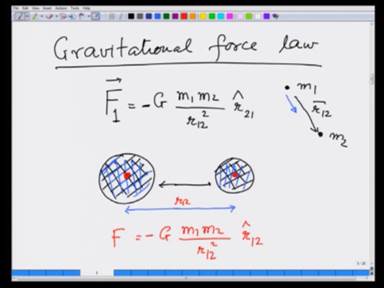 Gravitational force law
F⃗₁ = -G m₁m₂/r₁₂² r̂₂₁
m₁
r⃗₁₂
m₂
r₁₂
F = -G m₁m₂/r₁₂² r̂₁₂